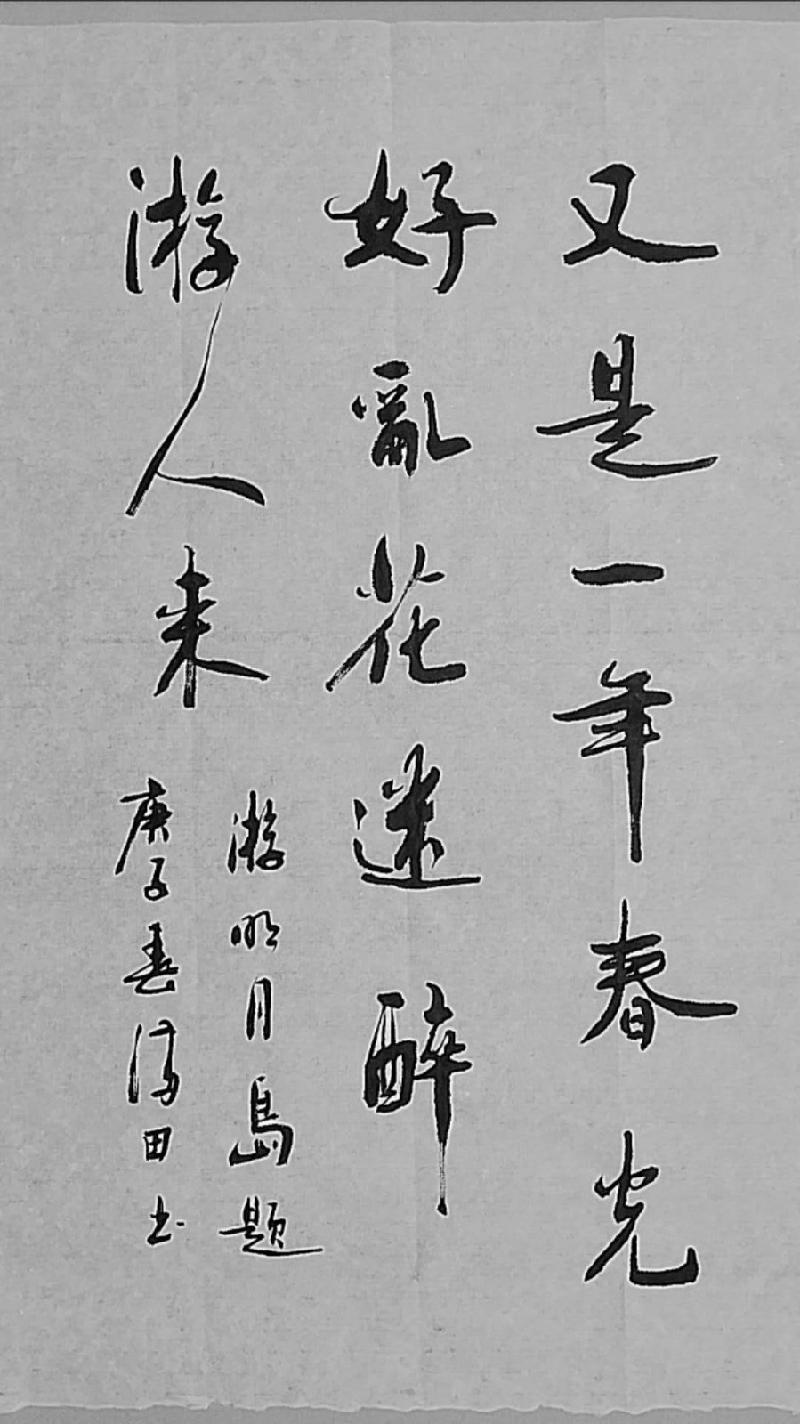 又是一年春光
好亂花迷醉
游人来
游明月島题
庚子春 田书